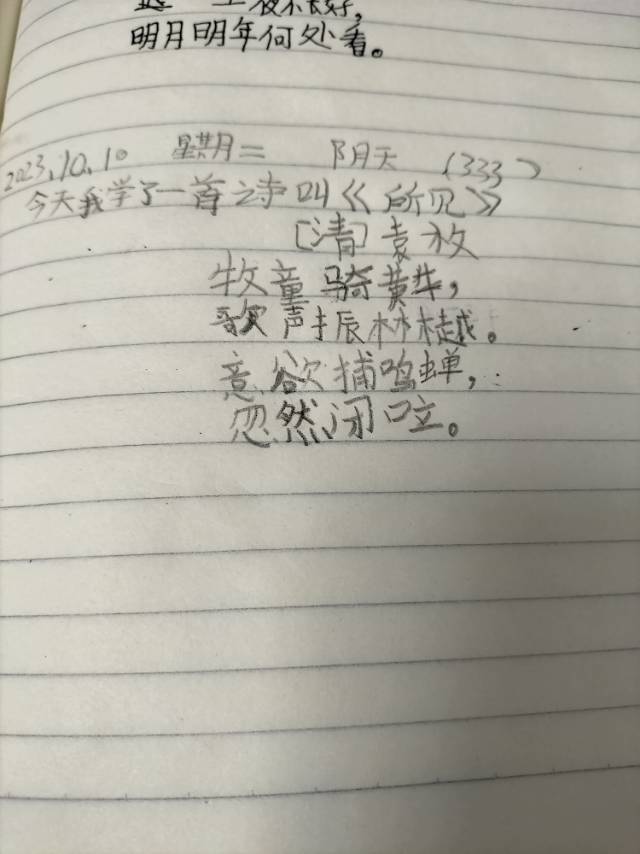 生夜不长好，
明月明年何处看。
2023.10.10 星期二 阴天 （333）
今天我学了一首诗叫《所见》
［清］袁枚
牧童骑黄牛，
歌声振林樾。
意欲捕鸣蝉，
忽然闭口立。